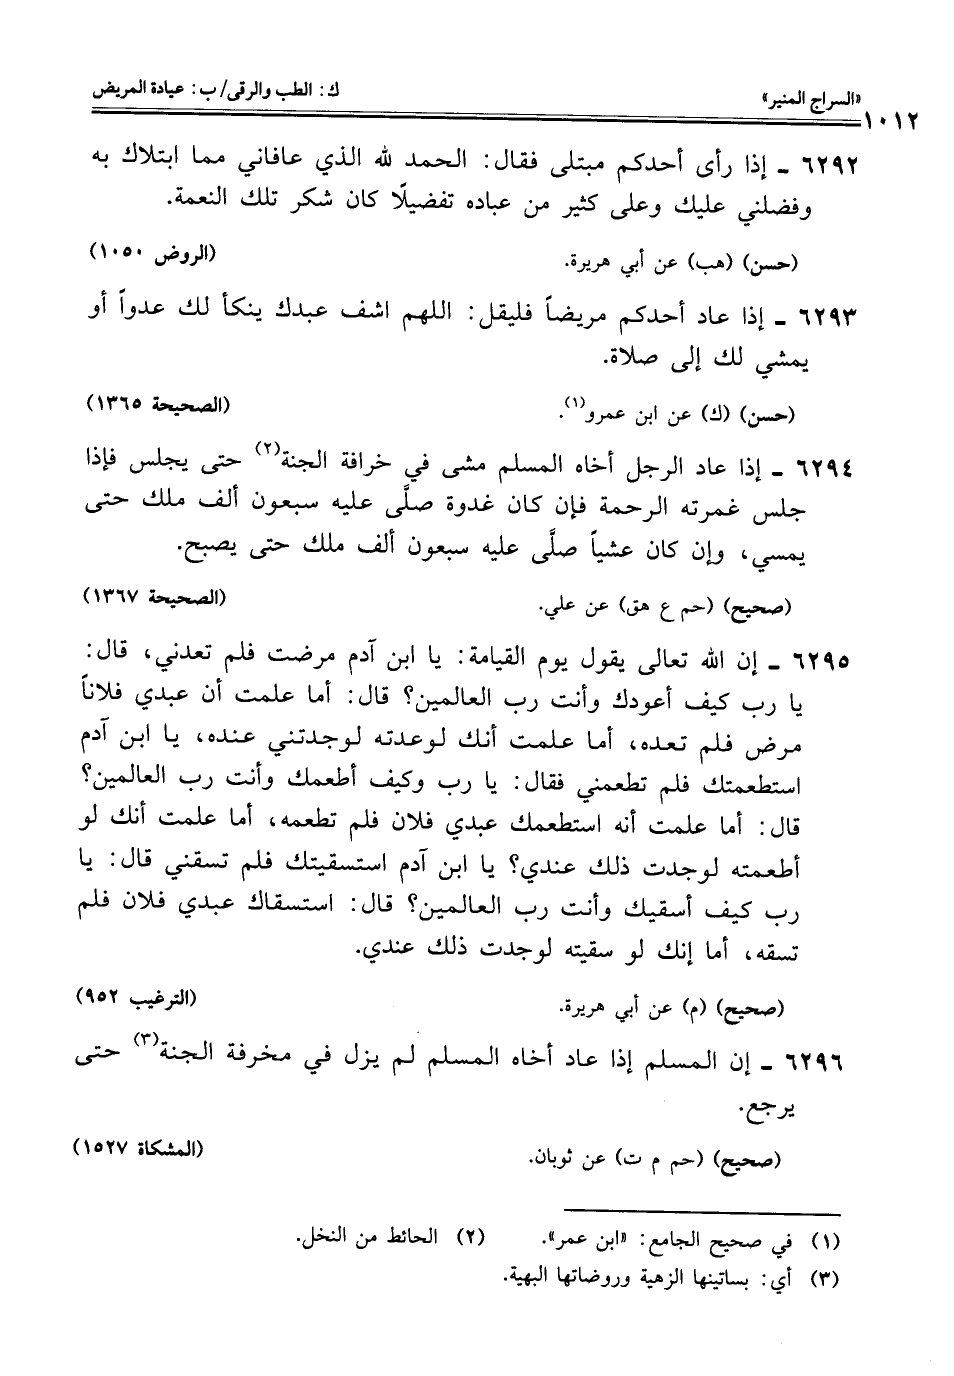 «السراج المنير» ك: الطب والرقى/ ب: عيادة المريض
١٠١٢
٦٢٩٢ ـ إذا رأى أحدكم مبتلى فقال: الحمد لله الذي عافاني مما ابتلاك به
وفضلني عليك وعلى كثير من عباده تفضيلًا كان شكر تلك النعمة.
(حسن) (هب) عن أبي هريرة. (الروض ١٠٥٠)
٦٢٩٣ ـ إذا عاد أحدكم مريضاً فليقل: اللهم اشف عبدك ينكأ لك عدواً أو
يمشي لك إلى صلاة.
(حسن) (ك) عن ابن عمرو(١). (الصحيحة ١٣٦٥)
٦٢٩٤ ـ إذا عاد الرجل أخاه المسلم مشى في خرافة الجنة(٢) حتى يجلس فإذا
جلس غمرته الرحمة فإن كان غدوة صلَّى عليه سبعون ألف ملك حتى
يمسي، وإن كان عشياً صلَّى عليه سبعون ألف ملك حتى يصبح.
(صحيح) (حم ع هق) عن علي. (الصحيحة ١٣٦٧)
٦٢٩٥ ـ إن الله تعالى يقول يوم القيامة: يا ابن آدم مرضت فلم تعدني، قال:
يا رب كيف أعودك وأنت رب العالمين؟ قال: أما علمت أن عبدي فلاناً
مرض فلم تعده، أما علمت أنك لوعدته لوجدتني عنده، يا ابن آدم
استطعمتك فلم تطعمني فقال: يا رب وكيف أطعمك وأنت رب العالمين؟
قال: أما علمت أنه استطعمك عبدي فلان فلم تطعمه، أما علمت أنك لو
أطعمته لوجدت ذلك عندي؟ يا ابن آدم استسقيتك فلم تسقني قال: يا
رب كيف أسقيك وأنت رب العالمين؟ قال: استسقاك عبدي فلان فلم
تسقه، أما إنك لو سقيته لوجدت ذلك عندي.
(صحيح) (م) عن أبي هريرة. (الترغيب ٩٥٢)
٦٢٩٦ ـ إن المسلم إذا عاد أخاه المسلم لم يزل في مخرفة الجنة(٣) حتى
يرجع.
(صحيح) (حم م ت) عن ثوبان. (المشكاة ١٥٢٧)
(١) في صحيح الجامع: «ابن عمر». (٢) الحائط من النخل.
(٣) أي: بساتينها الزهية وروضاتها البهية.